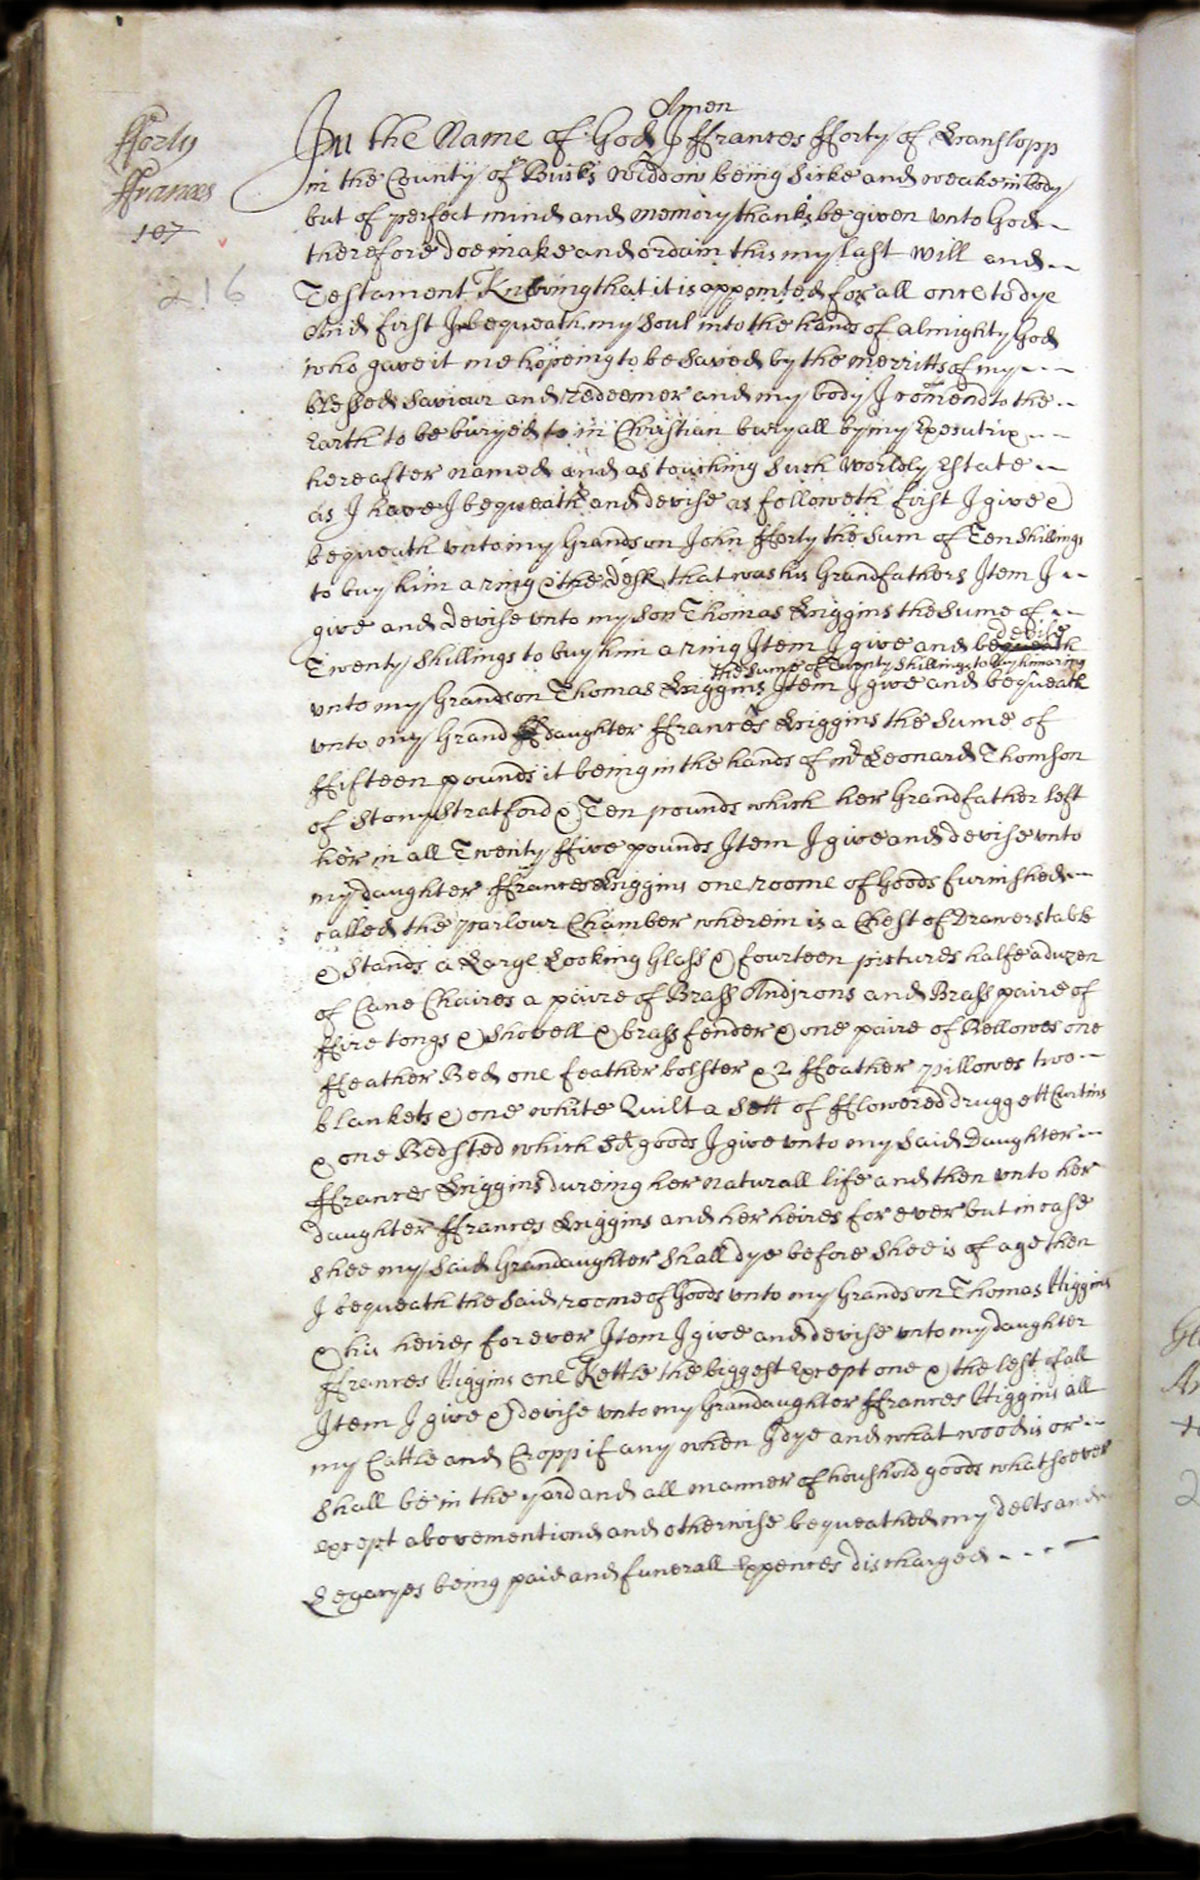 fforty
ffrances
107
216
Amen
In the Name of God I ffrances fforty of Hanslopp
in the County of Bucks Widdow being Sicke and weake in body
but of perfect mind and memory thanks be given unto God
therefore doe make and ordain this my last Will and
Testament Knowing that it is appointed for all once to dye
And first I bequeath my Soul into the hands of almighty God
who gave it me hopeing to be Saved by the merritts of my
blessed Saviour and redeemer and my body I comend to the
Earth to be buryed to in Christian buryall by my Executrix
hereafter named and as touching Such Worldly Estate
as I have I bequeath and devise as followeth first I give &
bequeath unto my Grandson John fforty the Sum of Ten Shillings
to buy him a ring & the desk that was his Grandfathers Item I
give and devise unto my Son Thomas Higgins the Sume of
devise
Twenty Shillings to buy him a ring Item I give and bequeath
the Sume of Twenty Shillings to buy him a ring
unto my Grandson Thomas Higgins Item I give and bequeath
unto my Grand daughter ffrances Higgins the Sume of
ffifteen pounds it being in the hands of mr Leonard Thomson
of Stony Stratford & Ten pounds which her Grandfather left
her in all Twenty ffive pounds Item I give and devise unto
my daughter ffrances Higgins one roome of Goods furnished
called the parlour Chamber wherein is a Chest of Drawers table
& Stands a Large Looking Glass & fourteen pictures halfe a duzen
of Cane Chaires a paire of Brass Andjrons and Brass paire of
ffire tongs & Shovell & brass fender & one paire of Bellowes one
ffeather Bed one feather bolster & 2 ffeather pillowes two
blankets & one white Quilt a Sett of fflowered druggett Curtins
& one Bedsted which Sd goods I give unto my Said Daughter
ffrances Higgins dureing her naturall life and then unto her
daughter ffrances Higgins and her heires for ever but in case
Shee my Said Grandaughter Shall dye before Shee is of age then
I bequeath the Said roome of Goods unto my Grandson Thomas Higgins
& his heires for ever Item I give and devise unto my daughter
ffrances Higgins one Kettle the biggest Except one & the lest of all
Item I give & devise unto my Grandaughter ffrances Higgins all
my Cattle and Cropp if any when I dye and what wood is or
Shall be in the yard and all manner of houshold goods whatsoever
except abovementiond and otherwise bequeathed my debts and
Legacyes being paid and funerall Expences discharged